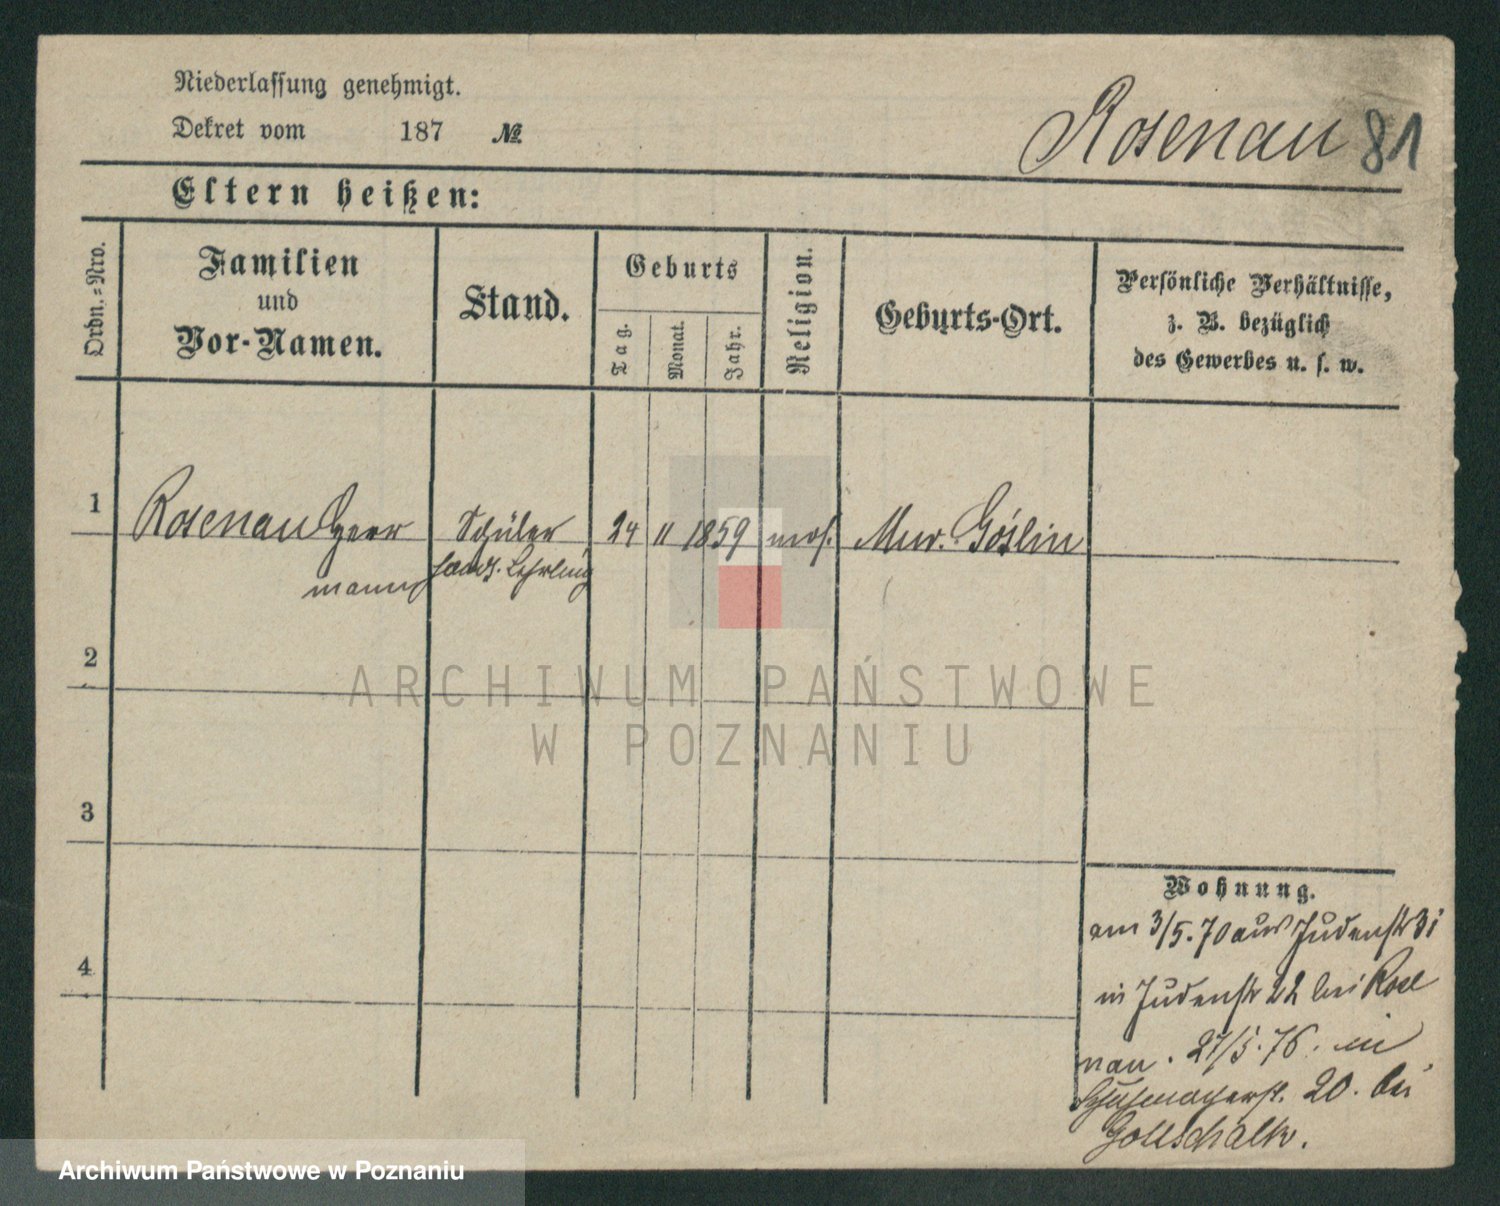 Niederlassung genehmigt.
Dekret vom 187 №
Rosenau 81
Eltern heißen:
Ordn.-Nro.
Familien
und
Vor-Namen.
Stand.
Geburts
Tag.
Monat.
Jahr.
Religion.
Geburts-Ort.
Persönliche Verhältnisse,
z. B. bezüglich
des Gewerbes u. s. w.
1 Rosenau Herr Schüler 24 11 1859 mos. Mur. Goslin
mann Handl. Lehrling
2
3
4
Wohnung.
am 3/5.70 aus Judenstr 31
in Judenstr 22 bei Rose
nau. 27/5.76. in
Schuhmacherst. 20. bei
Gottschalk.
ARCHIWUM PAŃSTWOWE
W POZNANIU
Archiwum Państwowe w Poznaniu